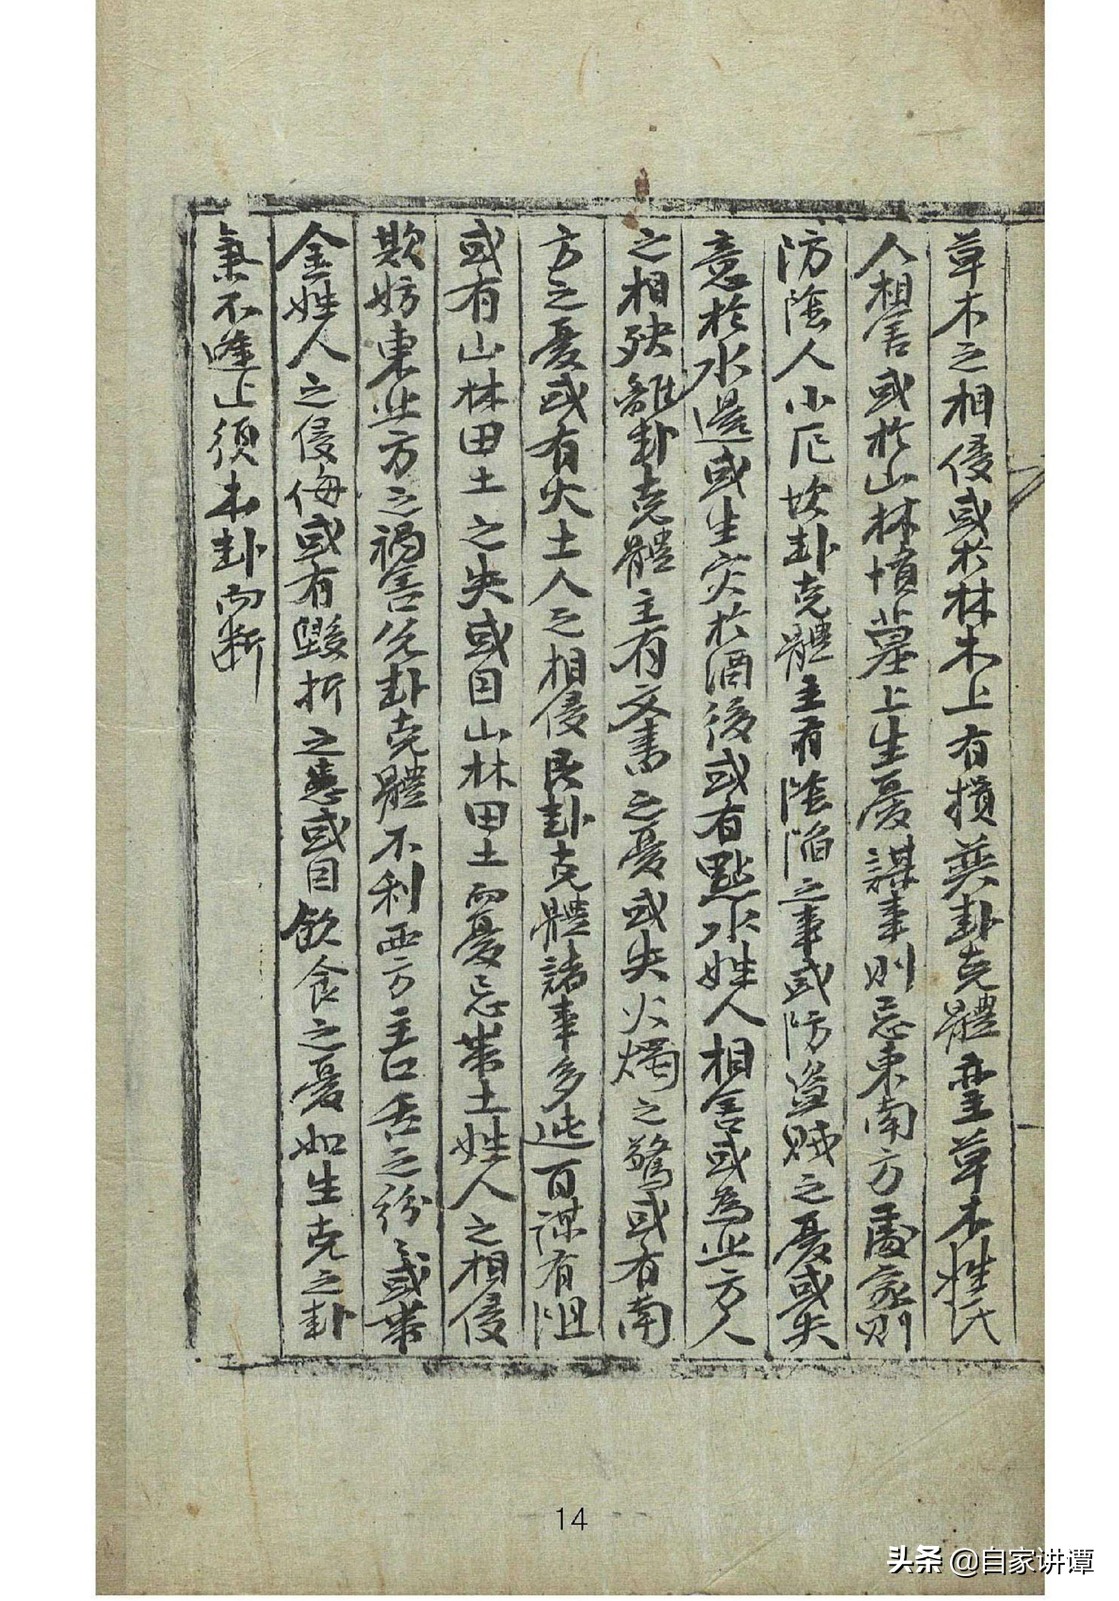 草木之相侵或於林木上有損巽卦克體主草木姓氏
人相害或於山林墳墓上生憂謀事則忌東南方處家則
防陰人小厄坎卦克體主有陰陷之事或防盜賊之憂或失
意於水邊或生灾於酒後或有點水姓人相害或為北方人
之相殃離卦克體主有文書之憂或失火燭之驚或有南
方之憂或有火土人之相侵艮卦克體諸事多迍百謀有阻
或有山林田土之失或因山林田土而憂忌帶土姓人之相侵
欺妨東北方之禍害兌卦克體不利西方主口舌之紛〻或帶
金姓人之侵侮或有毀折之患或因飲食之憂如生克之卦
兼不逢止須本卦而断
14
头条 @自家讲谭